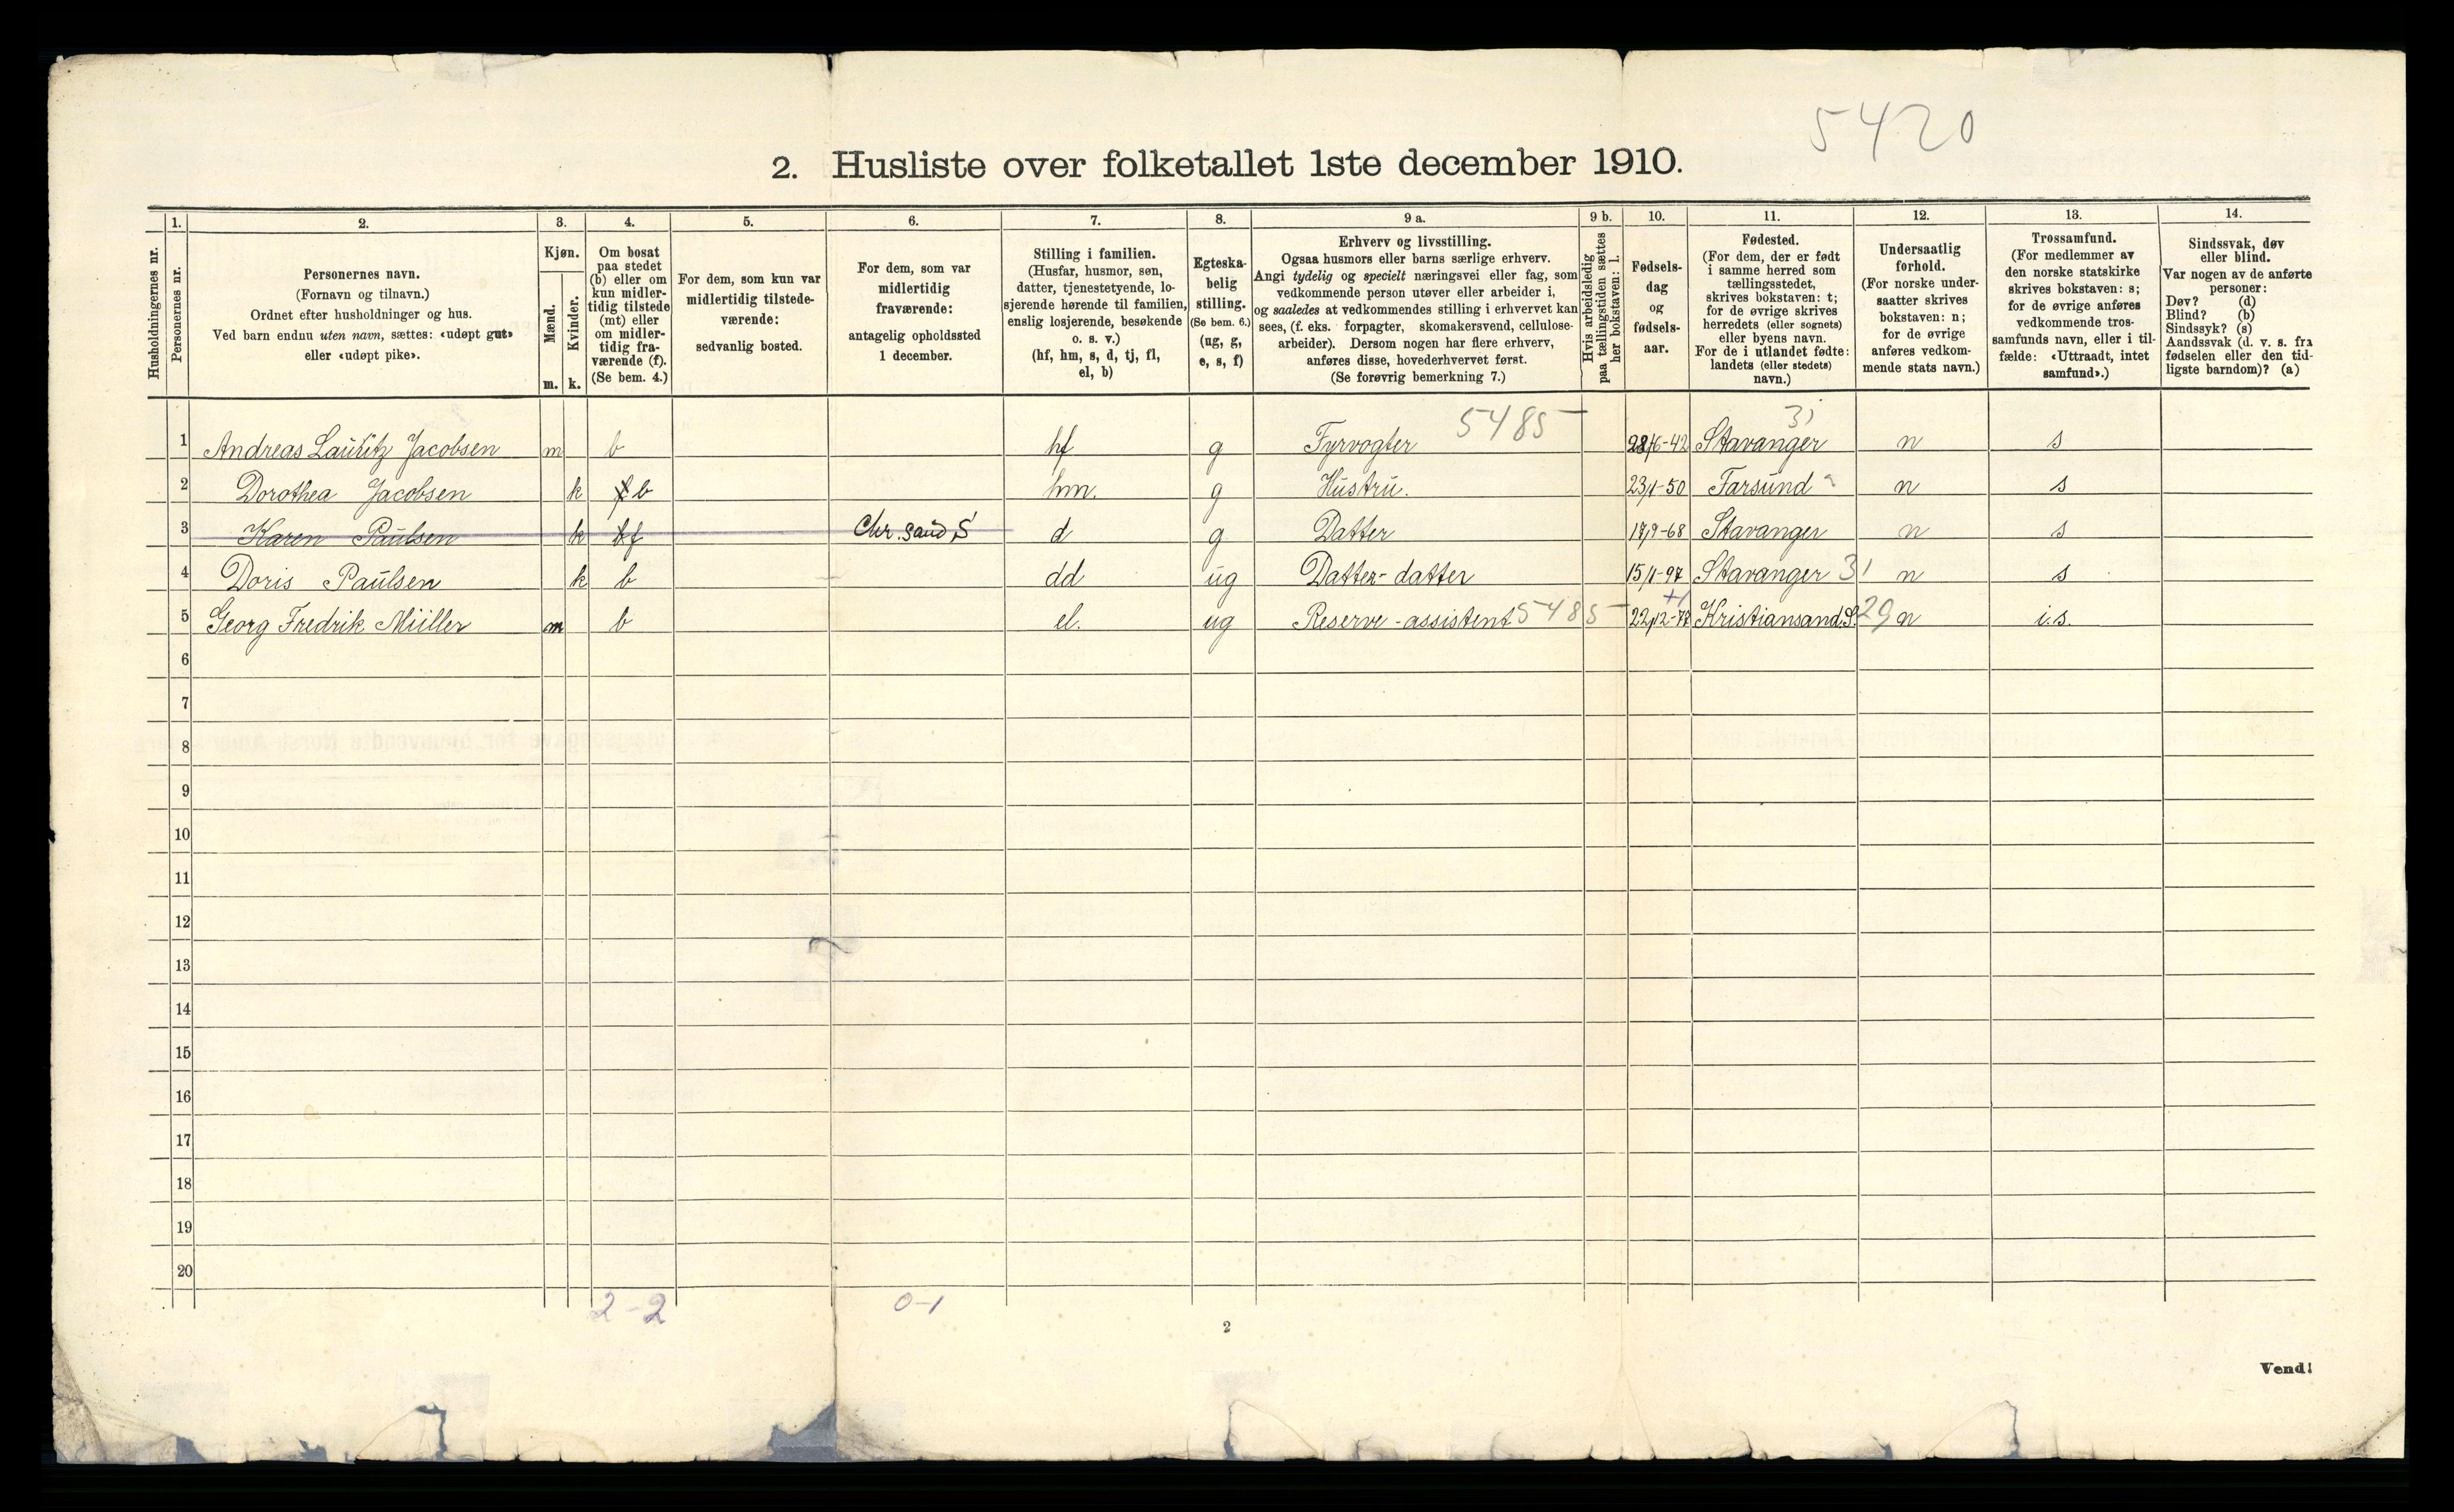 5420
2. Husliste over folketallet 1ste december 1910.
Husholdningernes nr.
1.
Personernes nr.
2.
Personernes navn.
(Fornavn og tilnavn.)
Ordnet efter husholdninger og hus.
Ved barn endnu uten navn, sættes: «udøpt gut»
eller «udøpt pike».
3.
Kjøn.
Mænd.
m.
Kvinder.
k.
4.
Om bosat
paa stedet
(b) eller om
kun midler-
tidig tilstede
(mt) eller
om midler-
tidig fra-
værende (f).
(Se bem. 4.)
5.
For dem, som kun var
midlertidig tilstede-
værende:
sedvanlig bosted.
6.
For dem, som var
midlertidig
fraværende:
antagelig opholdssted
1 december.
7.
Stilling i familien.
(Husfar, husmor, søn,
datter, tjenestetyende, lo-
sjerende hørende til familien,
enslig losjerende, besøkende
o. s. v.)
(hf, hm, s, d, tj, fl,
el, b)
8.
Egteska-
belig
stilling.
(Se bem. 6.)
(ug, g,
e, s, f)
9 a.
Erhverv og livsstilling.
Ogsaa husmors eller barns særlige erhverv.
Angi tydelig og specielt næringsvei eller fag, som
vedkommende person utøver eller arbeider i,
og saaledes at vedkommendes stilling i erhvervet kan
sees, (f. eks. forpagter, skomakersvend, cellulose-
arbeider). Dersom nogen har flere erhverv,
anføres disse, hovederhvervet først.
(Se forøvrig bemerkning 7.)
9 b.
Hvis arbeidsledig
paa tællingstiden sættes
her bokstaven: l.
10.
Fødsels-
dag
og
fødsels-
aar.
11.
Fødested.
(For dem, der er født
i samme herred som
tællingsstedet,
skrives bokstaven: t;
for de øvrige skrives
herredets (eller sognets)
eller byens navn.
For de i utlandet fødte:
landets (eller stedets)
navn.)
12.
Undersaatlig
forhold.
(For norske under-
saatter skrives
bokstaven: n;
for de øvrige
anføres vedkom-
mende stats navn.)
13.
Trossamfund.
(For medlemmer av
den norske statskirke
skrives bokstaven: s;
for de øvrige anføres
vedkommende tros-
samfunds navn, eller i til-
fælde: «Uttraadt, intet
samfund».)
14.
Sindssvak, døv
eller blind.
Var nogen av de anførte
personer:
Døv? (d)
Blind? (b)
Sindssyk? (s)
Aandssvak (d. v. s. fra
fødselen eller den tid-
ligste barndom)? (a)
1 Andreas Lauritz Jacobsen m b hf g Fyrvogter 5485 28/6-42 Stavanger 31 n s
2 Dorothea Jacobsen k f b hm. g Hustru. 23/1-50 Farsund n s
3 Karen Paulsen k b f Chr. sand S d g Datter 17/9-68 Stavanger n s
4 Doris Paulsen k b dd ug Datter-datter 15/1-97 Stavanger 31 n s
5 Georg Fredrik Müller m b el. ug Reserve-assistent 5485 22/12-77 Kristiansand.S. 29 n i.s.
6
7
8
9
10
11
12
13
14
15
16
17
18
19
20
2-2 0-1
2
Vend!